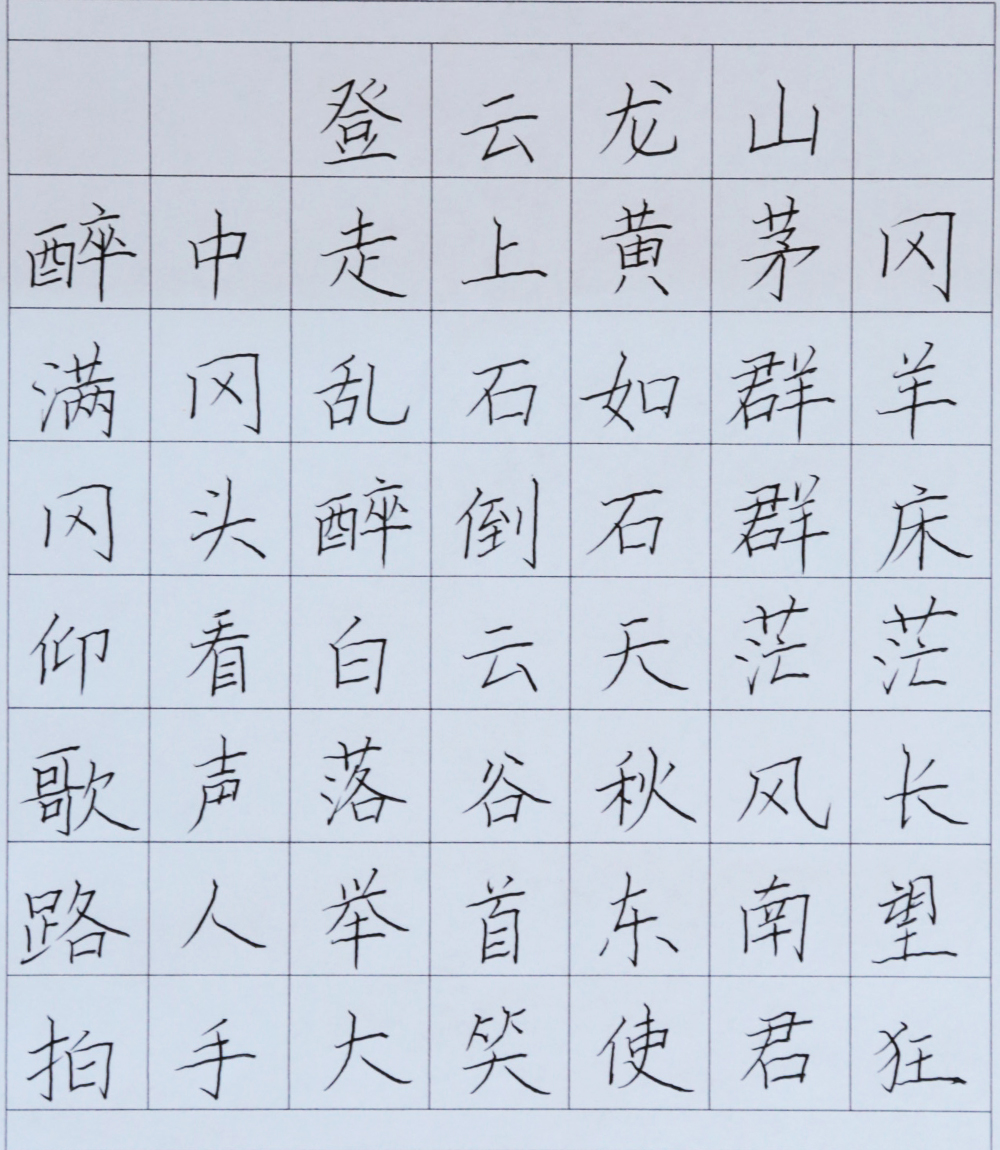 登云龙山
醉中走上黄茅冈
满冈乱石如群羊
冈头醉倒石群床
仰看白云天茫茫
歌声落谷秋风长
路人举首东南望
拍手大笑使君狂